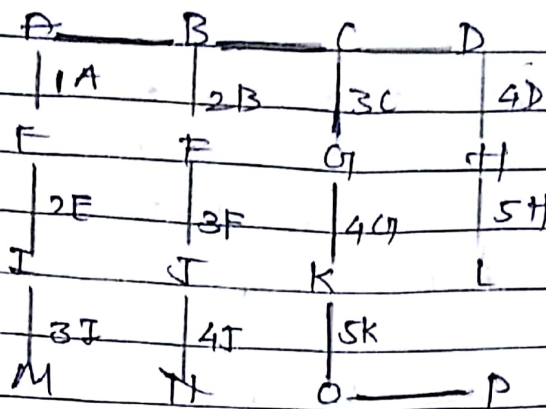 A B C D
1A 2B 3C 4D
E F G H
2E 3F 4G 5H
I J K L
3I 4J 5K
M N O P